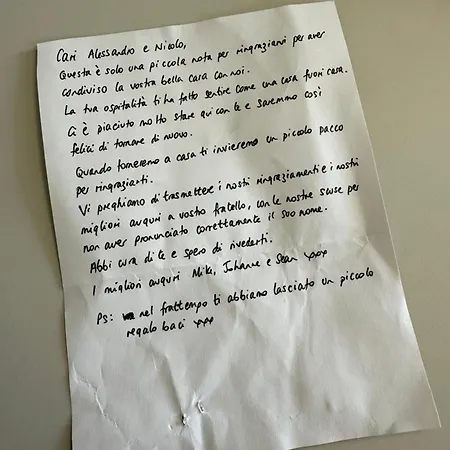 Cari Alessandro e Nicolo,
Questa è solo una piccola nota per ringraziarvi per aver
condiviso la vostra bella casa con noi.
La tua ospitalità ti ha fatto sentire come una casa fuori casa.
Ci è piaciuto molto stare qui con te e saremmo così
felici di tornare di nuovo.
Quando torneremo a casa ti invieremo un piccolo pacco
per ringraziarti.
Vi preghiamo di trasmettere i nostri ringraziamenti e i nostri
migliori auguri a vostro fratello, con le nostre scuse per
non aver pronunciato correttamente il suo nome.
Abbi cura di te e spero di rivederti.
I migliori auguri Mike, Johanne e Sean xxx
PS: nel frattempo ti abbiamo lasciato un piccolo
regalo baci xxx